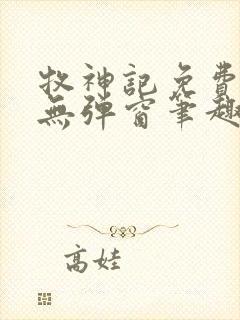 牧神記免費
無彈窗筆趣
高娃